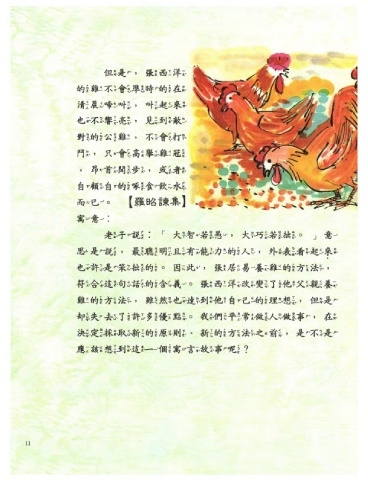 但是，張西洋
的雞不會準時的在
清晨啼叫，叫起來
也不響亮，見到敵
對的公雞，不會打
鬥，只會高舉雞冠
，昂首闊步，或者
自顧自的啄食飲水
而已。【羅昭諫集】
寓意：
老子說：「大智若愚，大巧若拙。」意
思是說，最聰明且有能力的人，外表看起來
也許是笨拙的。因此，張居易養雞的方法，
符合這句話的含義。張西洋改變了他父親養
雞的方法，雖然也達到他自己的理想，但是
却失去了許多優點。我們平常做人做事，在
決定採取新的原則、新的方法之前，是不是
應該想到這一個寓言故事呢？
11